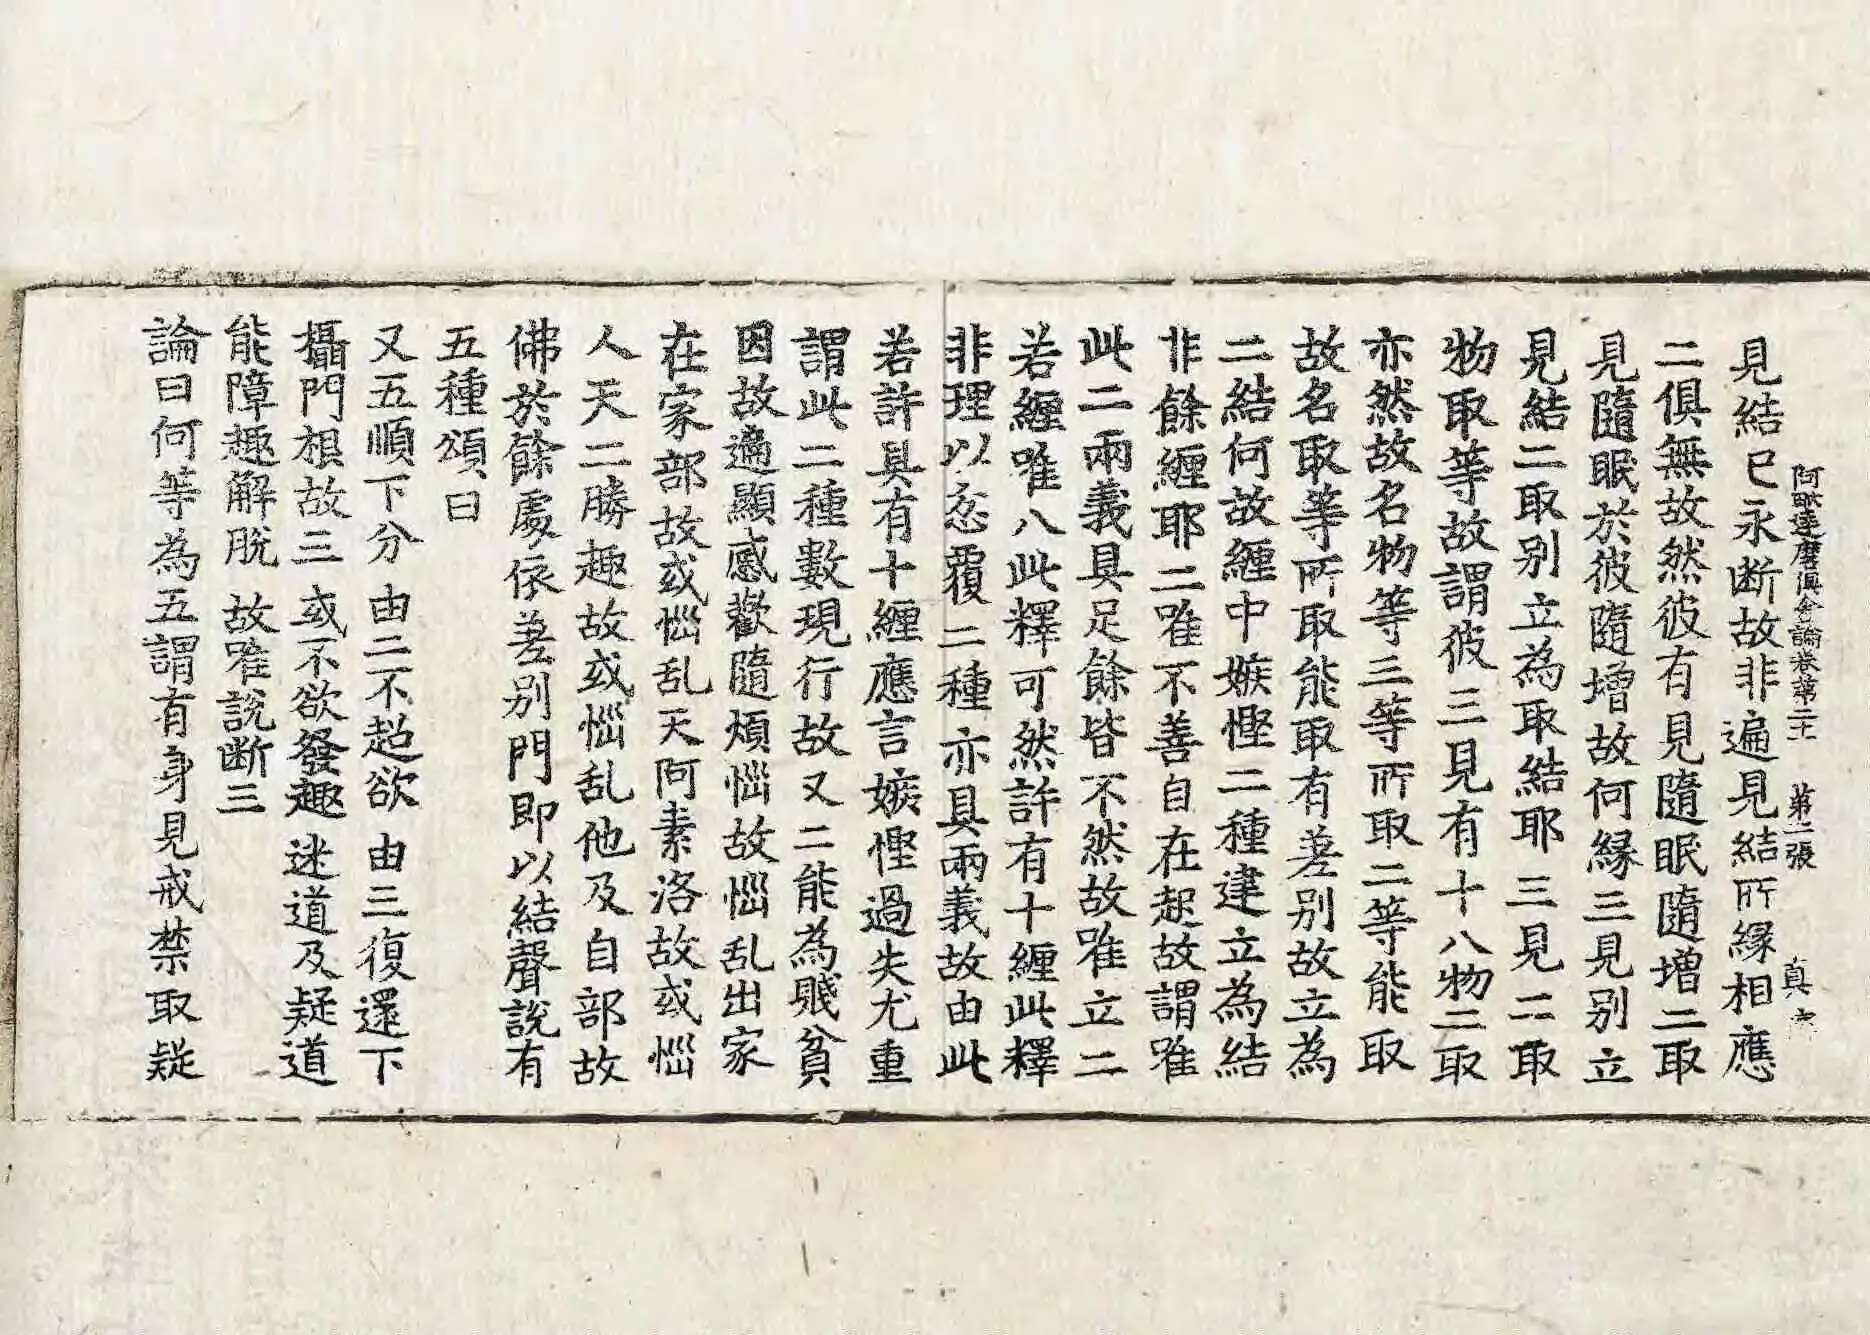 阿毗達磨俱舍論卷第二十一 第二張 真
見結已永断故非遍見結所緣相應
二俱無故然彼有見隨眠隨增二取
見隨眠於彼隨增故何緣三見别立
見結二取别立為取結耶三見二取
物取等故謂彼三見有十八物二取
亦然故名物等三等所取二等能取
故名取等所取能取有差别故立為
二結何故纏中嫉慳二種建立為結
非餘纏耶二唯不善自在起故謂唯
此二兩義具足餘皆不然故唯立二
若纏唯八此釋可然許有十纏此釋
非理以忿覆二種亦具兩義故由此
若許具有十纏應言嫉慳過失尤重
謂此二種數現行故又二能為賤貧
因故遍顯慼歡隨煩惱故惱乱出家
在家部故或惱乱天阿素洛故或惱
人天二勝趣故或惱乱他及自部故
佛於餘處依差别門即以結聲說有
五種頌曰
又五順下分 由二不超欲 由三復還下
攝門根故三 或不欲發趣 迷道及疑道
能障趣解脫 故唯說断三
論曰何等為五謂有身見戒禁取疑